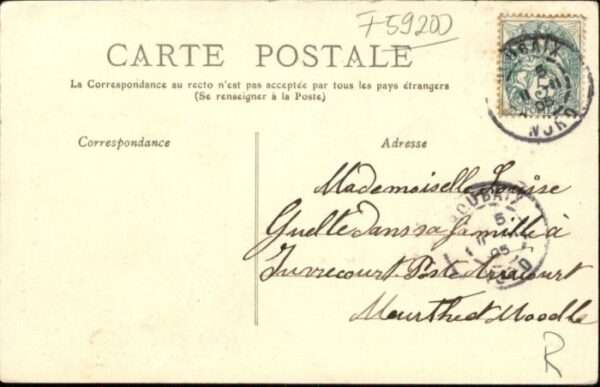 F59200
CARTE POSTALE
La Correspondance au recto n'est pas acceptée par tous les pays étrangers
(Se renseigner à la Poste)
Correspondance
Adresse
Mademoiselle Louise
Guelle dans sa famille à
Juvrecourt Poste Arracourt
Meurthe et Moselle
ROUBAIX
5
05
NORD
R